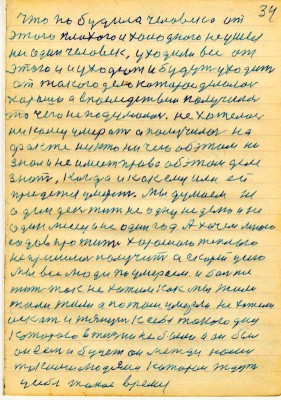 34
Что по будила человека от
этого плохого и холодного не ушел
ни один человек, уходили все от
этого и уходют и будут уходить
от такого дела которое думалось
хорошо а впоследствии получилось
то чего не подумалось. не хотелось
никому умерать а получилось на
факте никто ни чего об этом не
знал и не имет право об этом деле
знать, когда и как ему или ей
придется умереть. Мы думаем не
один день жить не одну неделю и не
один месяц и не один год. А хочем много
годов прожить хорошего теплого
не пришлось получить а скоро дело
Мы все люди поумерем. и больше
жить так не хотим как мы жили
жили жили а потом умерли не хотим
искать и тянуть к себе такого дня
которого в жизни не было а он был
он есть и будет он между нами
такими людями которые ждут
себе такое время